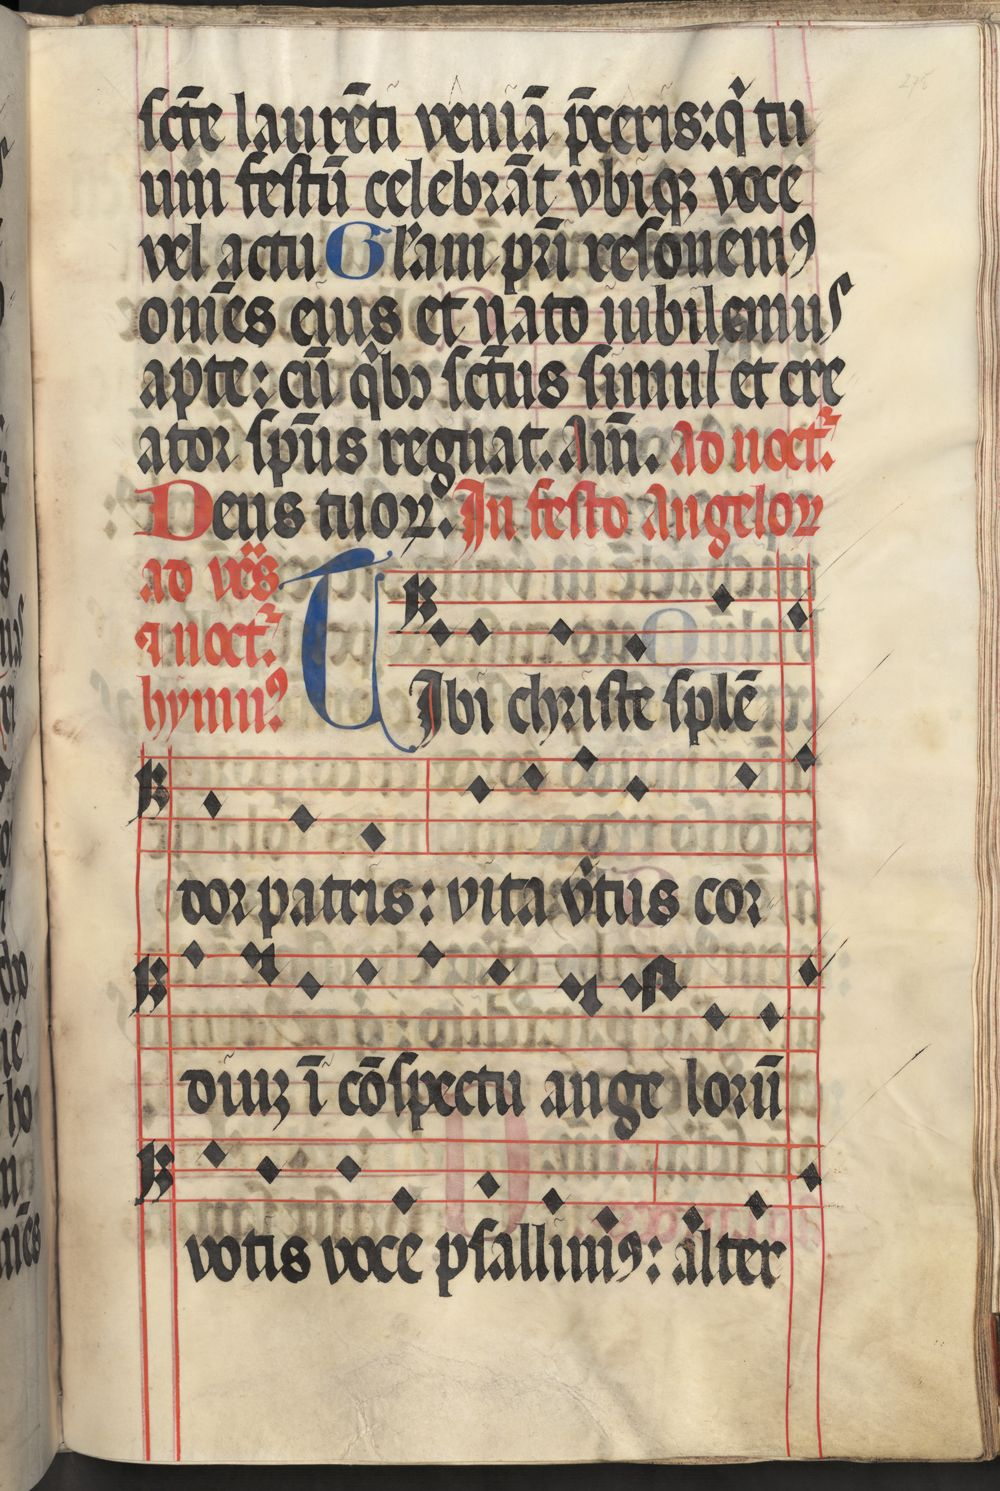 sct̄e laurēti veniā p̄ceris: q̇ tu
um festū celebrāt vbiqꝫ voce
vel actu Gl̄am pr̄i resonemꝰ
om̄es eius et nato iubilemus
apte: cū q̇bꝫ sct̄us simul et cre
ator sp̄us regnat. Am̄. Ad noct̄.
Deus tuoꝝ. In festo Angeloꝝ
ad vr̄s
⁊ noct̄.
hymnꝰ
TIbi christe splē
dor patris: vita v̓tus cor
diuꝫ ī cōspectu ange lorū
votis voce psallimꝰ: alter